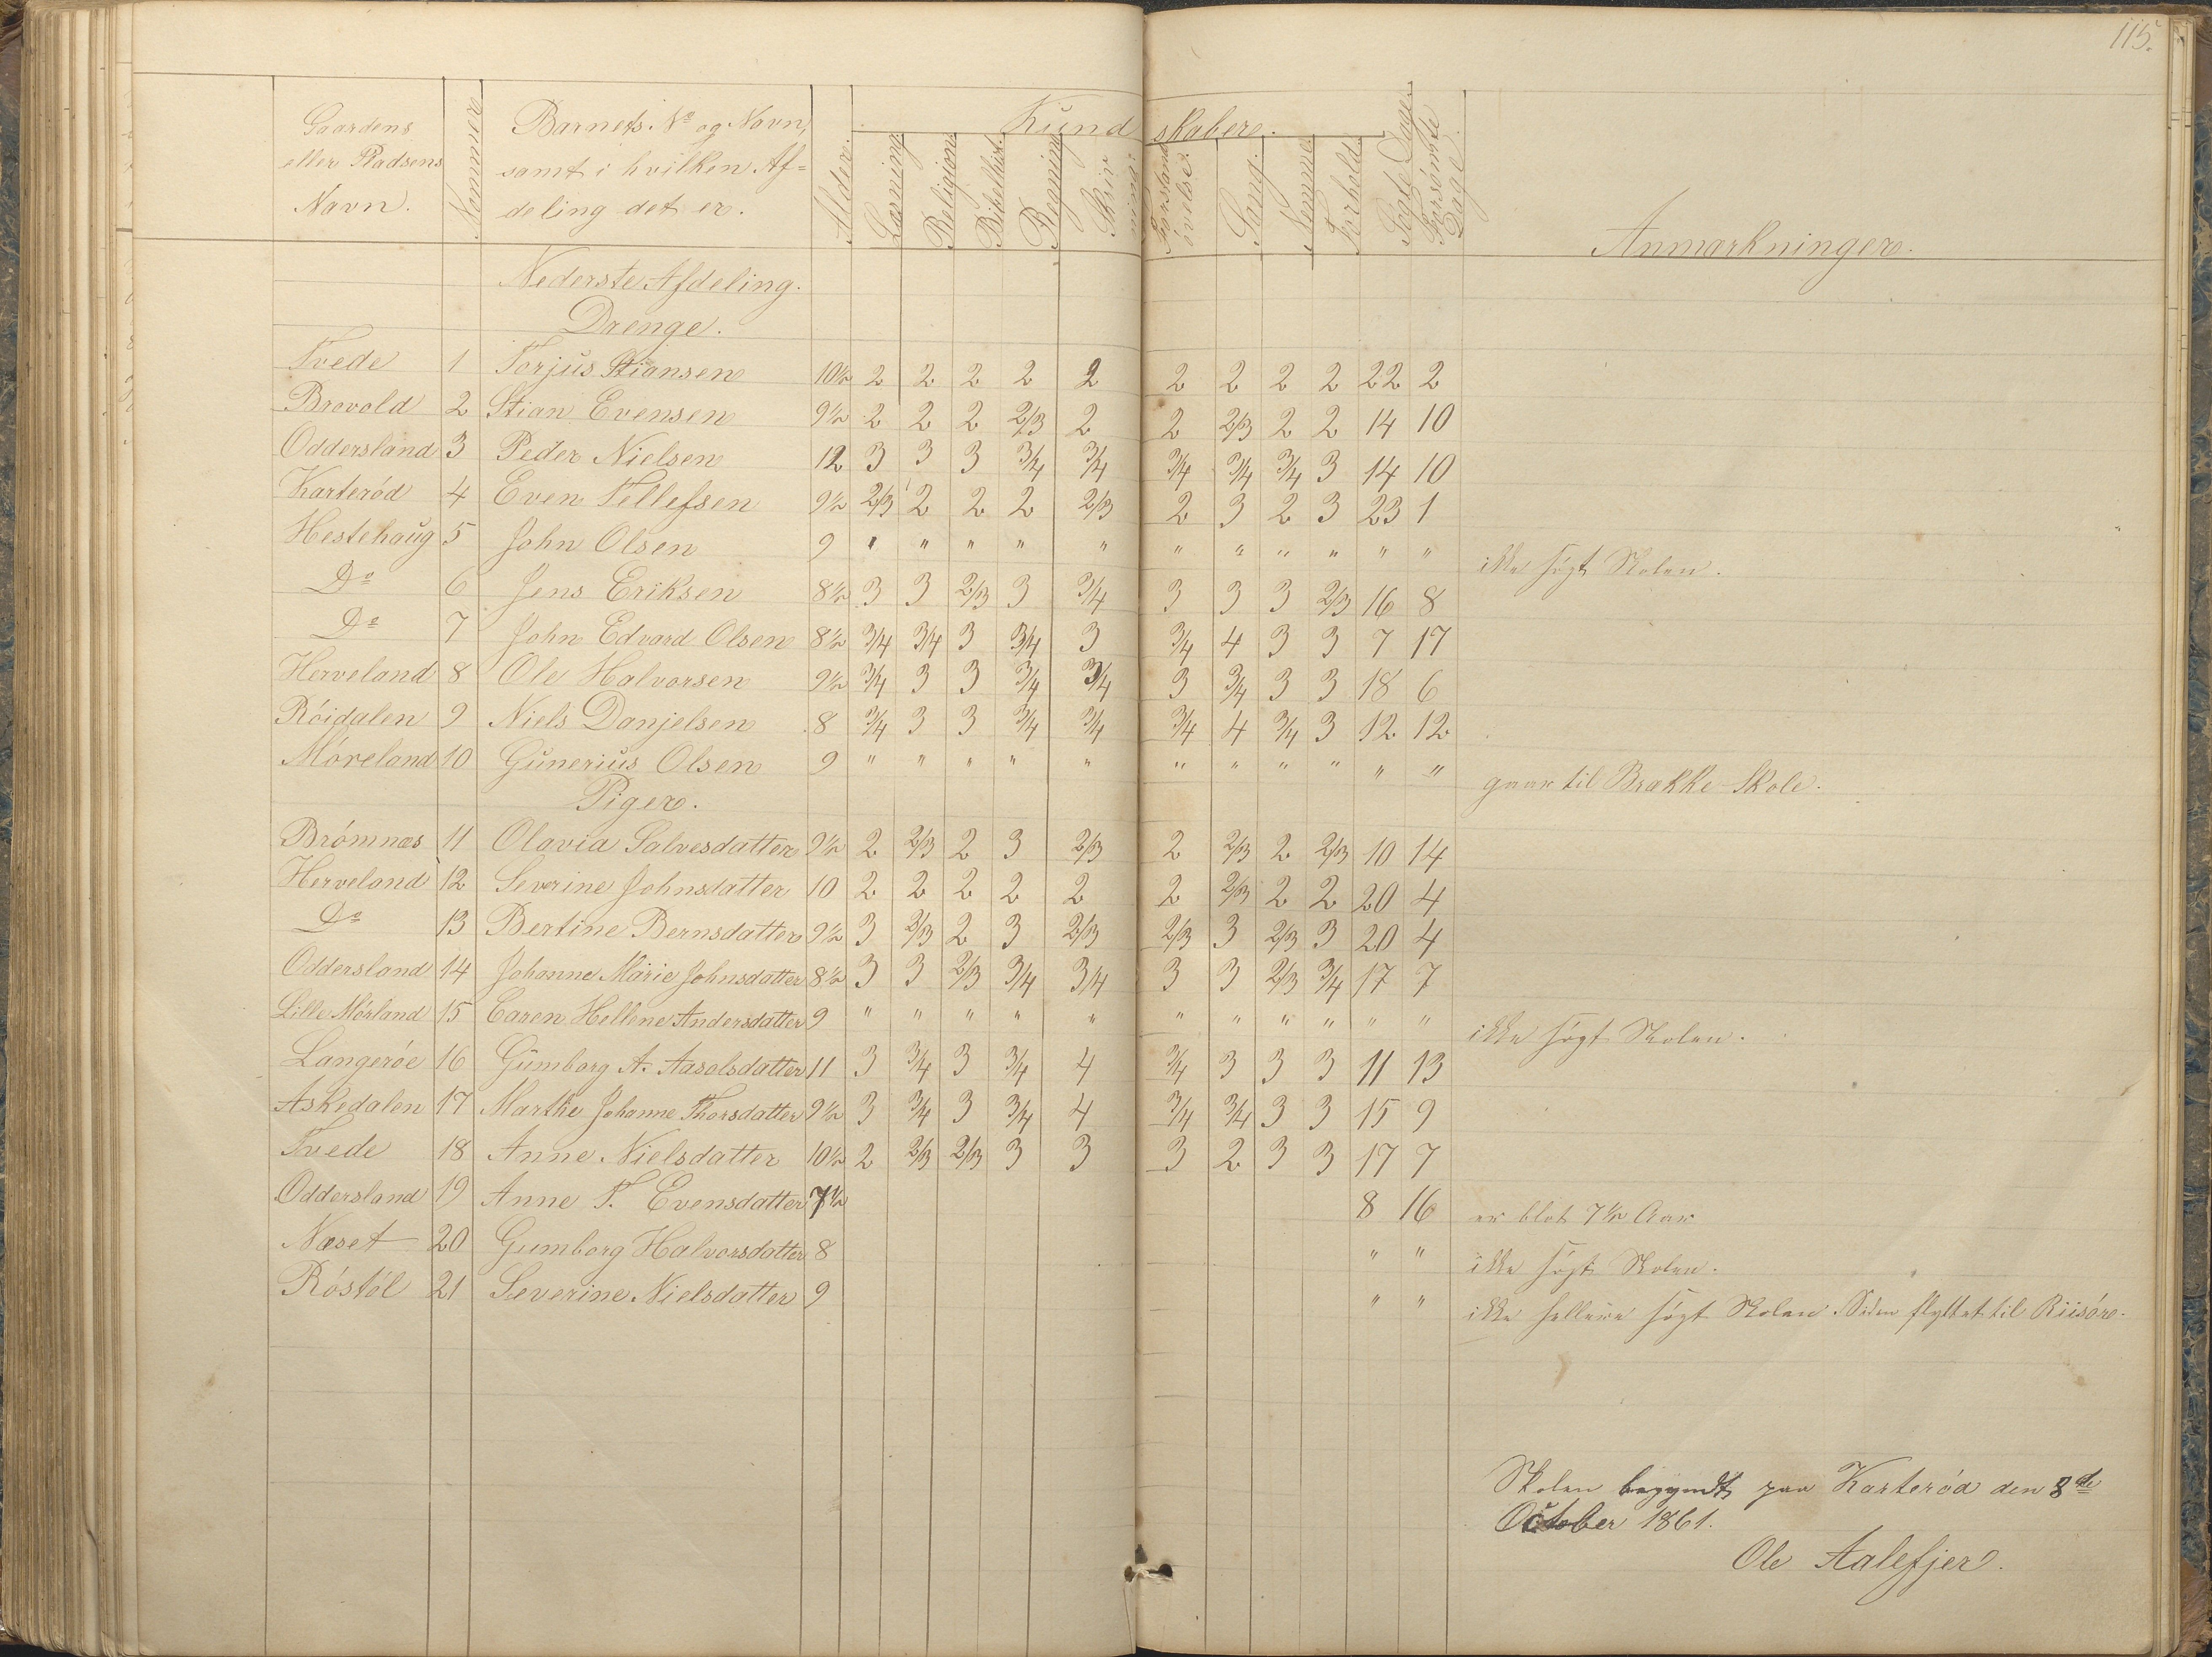 115.
Gaardens eller Pladsens Navn. Nummere Barnets No og Navn, samt i hvilken Afdeling det er. Alder. Kundskaber. Læsning. Religion Bibelhist. Regning Skrivning Forstandsövelse. Sang. Nemme Forhold. Sögte Dage. Forsömte Dage. Anmærkninger.
Nederste Afdeling.
Drenge.
Tvede 1 Torjus Stiansen 10½ 2 2 2 2 2 2 2 2 2 22 2
Brovold 2 Stian Evensen 9½ 2 2 2 2/3 2 2 2/3 2 2 14 10
Oddersland 3 Peder Nielsen 12 3 3 3 3/4 3/4 3/4 3/4 3/4 3 14 10
Karteröd 4 Even Tellefsen 9½ 2/3 2 2 2 2/3 2 3 2 3 23 1
Hestehaug 5 John Olsen 9 " " " " " " " " " " " ikke sögt Skolen.
Do 6 Jens Eriksen 8½ 3 3 2/3 3 3/4 3 3 3 2/3 16 8
Do 7 John Edvard Olsen 8½ 3/4 3/4 3 3/4 3 3/4 4 3 3 7 17
Herveland 8 Ole Halvorsen 9½ 3/4 3 3 3/4 3/4 3 3/4 3 3 18 6
Röidalen 9 Niels Danjelsen 8 3/4 3 3 3/4 3/4 3/4 4 3/4 3 12 12
Möreland 10 Gunerius Olsen 9 " " " " " " " " " " " gaar til Brække-Skole.
Piger.
Brömnæs 11 Olavia Salvesdatter 9½ 2 2/3 2 3 2/3 2 2/3 2 2/3 10 14
Herveland 12 Severine Johnsdatter 10 2 2 2 2 2 2 2/3 2 2 20 4
Do 13 Bertine Bernsdatter 9½ 3 2/3 2 3 2/3 2/3 3 2/3 3 20 4
Oddersland 14 Johanne Marie Johnsdatter 8½ 3 3 2/3 3/4 3/4 3 3 2/3 3/4 17 7
Lille Mörland 15 Caren Hellene Andersdatter 9 " " " " " " " " " " " ikke sögt Skolen.
Langeröe 16 Gumborg A. Aasolsdatter 11 3 3/4 3 3/4 4 3/4 3 3 3 11 13
Askedalen 17 Marthe Johanne Thorsdatter 9½ 3 3/4 3 3/4 4 3/4 3/4 3 3 15 9
Tvede 18 Anne Nielsdatter 10½ 2 2/3 2/3 3 3 3 2 3 3 17 7
Oddersland 19 Anne T. Evensdatter 7½ 8 16 er blot 7½ Aar
Næset 20 Gumborg Halvorsdatter 8 " " ikke sögt Skolen.
Röstöl 21 Severine Nielsdatter 9 " " ikke hellere sögt Skolen. Siden flyttet til Riisöre.
Skolen begyndt paa Karteröd den 8de
October 1861.
Ole Aalefjer.